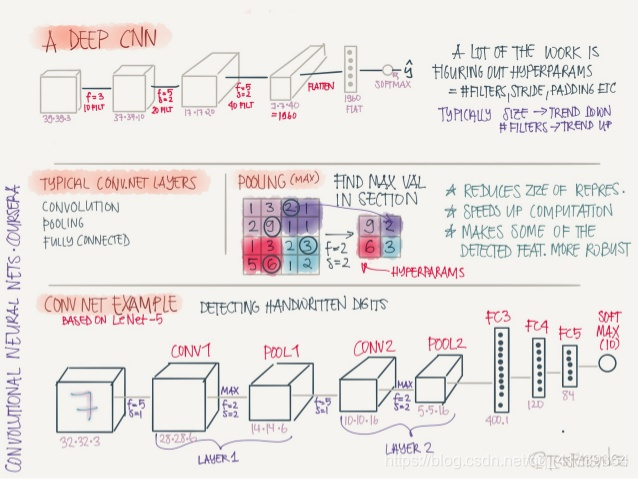 A DEEP CNN
39·39·3
f=3
10 FILT
37·37·10
f=5
s=2
20 FILT
17·17·20
f=5
s=2
40 FILT
7·7·40
=1960
FLATTEN
1960
FLAT
SOFTMAX
ŷ
A LOT OF THE WORK IS
FIGURING OUT HYPERPARAMS
= #FILTERS, STRIDE, PADDING ETC
TYPICALLY SIZE → TREND DOWN
#FILTERS → TREND UP
TYPICAL CONV.NET LAYERS
CONVOLUTION
POOLING
FULLY CONNECTED
POOLING (MAX)
FIND MAX VAL
IN SECTION
1 3 2 1
2 9 1 1
1 3 2 3
5 6 1 2
f=2
s=2
9 2
6 3
HYPERPARAMS
☆ REDUCES SIZE OF REPRES.
☆ SPEEDS UP COMPUTATION
☆ MAKES SOME OF THE
DETECTED FEAT. MORE ROBUST
CONV NET EXAMPLE
BASED ON LeNet-5
DETECTING HANDWRITTEN DIGITS
7
32·32·3
f=5
s=1
CONV1
28·28·6
MAX
f=2
s=2
POOL1
14·14·6
LAYER 1
f=5
s=1
CONV2
10·10·16
MAX
f=2
s=2
POOL2
5·5·16
LAYER 2
FC3
400,1
FC4
120
FC5
84
SOFT
MAX
(10)
CONVOLUTIONAL NEURAL NETS·COURSERA